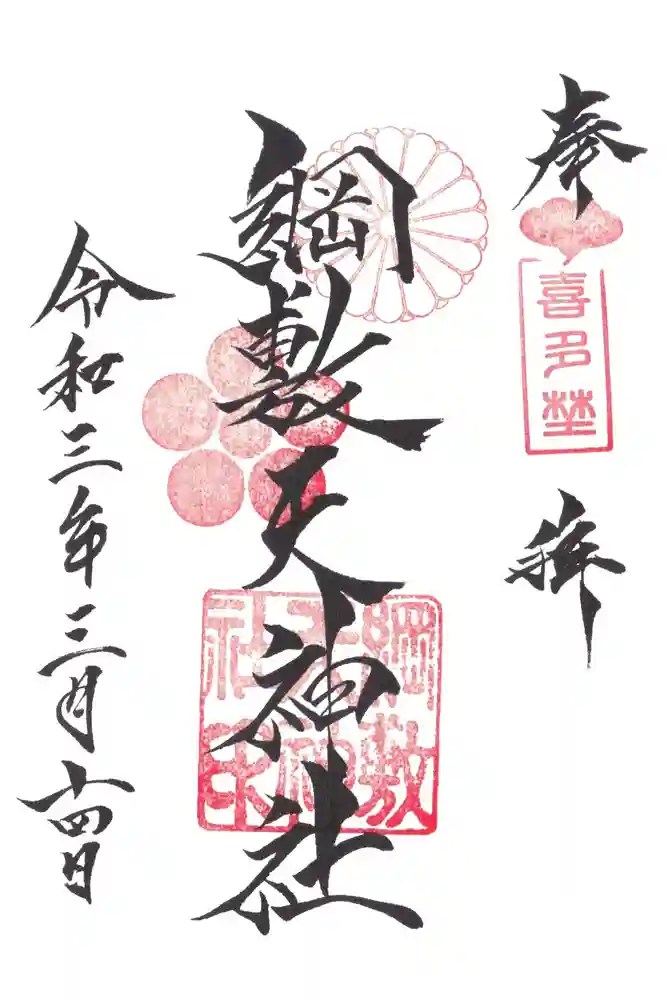 奉
喜多埜
拝
綱敷天神社
綱敷天神社印
令和三年三月十四日